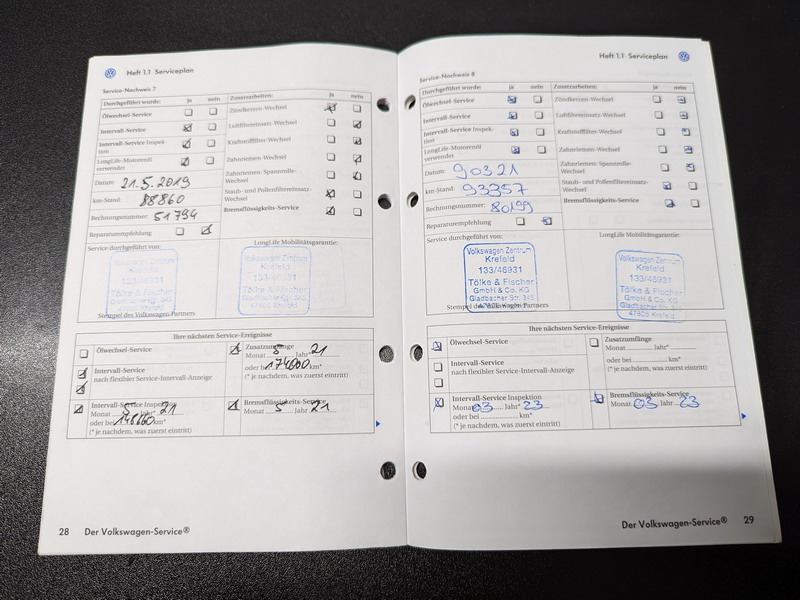 Heft 1.1 Serviceplan
Service-Nachweis 7
Durchgeführt wurde: ja nein
Ölwechsel-Service
Intervall-Service
Intervall-Service Inspek-
tion
LongLife-Motorenöl
verwendet
Datum: 21.5.2019
km-Stand: 88860
Rechnungsnummer: 51794
Reparaturempfehlung
Zusatzarbeiten: ja nein
Zündkerzen-Wechsel
Luftfiltereinsatz-Wechsel
Kraftstofffilter-Wechsel
Zahnriemen-Wechsel
Zahnriemen-Spannrolle-
Wechsel
Staub- und Pollenfiltereinsatz-
Wechsel
Bremsflüssigkeits-Service
Service durchgeführt von:
Volkswagen Zentrum
Krefeld
133/46931
Tölke & Fischer
LongLife Mobilitätsgarantie:
Volkswagen Zentrum
Krefeld
133/46931
Tölke & Fischer
Stempel des Volkswagen Partners
Ihre nächsten Service-Ereignisse
Ölwechsel-Service
Intervall-Service
nach flexibler Service-Intervall-Anzeige
Intervall-Service Inspektion
Monat 5 Jahr* 21
oder bei km*
(* je nachdem, was zuerst eintritt)
Zusatzumfänge
Monat 5 Jahr 21
oder bei km*
(* je nachdem, was zuerst eintritt)
Bremsflüssigkeits-Service
Monat 5 Jahr 21
28 Der Volkswagen-Service®
Heft 1.1 Serviceplan
Service-Nachweis 8
Durchgeführt wurde: ja nein
Ölwechsel-Service
Intervall-Service
Intervall-Service Inspek-
tion
LongLife-Motorenöl
verwendet
Datum: 90321
km-Stand: 93357
Rechnungsnummer: 80199
Reparaturempfehlung
Zusatzarbeiten: ja nein
Zündkerzen-Wechsel
Luftfiltereinsatz-Wechsel
Kraftstofffilter-Wechsel
Zahnriemen-Wechsel
Zahnriemen Spannrolle-
Wechsel
Staub- und Pollenfiltereinsatz-
Wechsel
Bremsflüssigkeits-Service
Service durchgeführt von:
Volkswagen Zentrum
Krefeld
133/46931
Tölke & Fischer
GmbH & Co. KG
Gladbacher Str. 345
47805 Krefeld
LongLife Mobilitätsgarantie:
Volkswagen Zentrum
Krefeld
133/46931
Tölke & Fischer
GmbH & Co. KG
Gladbacher Str. 345
47805 Krefeld
Stempel des Volkswagen Partners
Ihre nächsten Service-Ereignisse
Ölwechsel-Service
Intervall-Service
nach flexibler Service-Intervall-Anzeige
Intervall-Service Inspektion
Monat 03 Jahr* 23
oder bei km*
(* je nachdem, was zuerst eintritt)
Zusatzumfänge
Monat Jahr*
oder bei km*
(* je nachdem, was zuerst eintritt)
Bremsflüssigkeits-Service
Monat 03 Jahr 23
Der Volkswagen-Service® 29